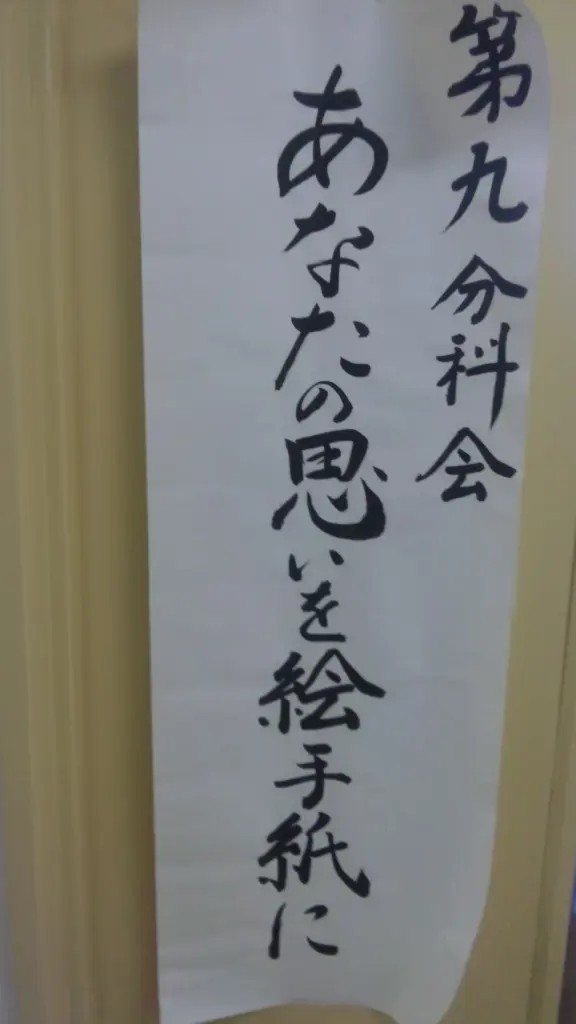 第九分科会
あなたの思いを絵手紙に